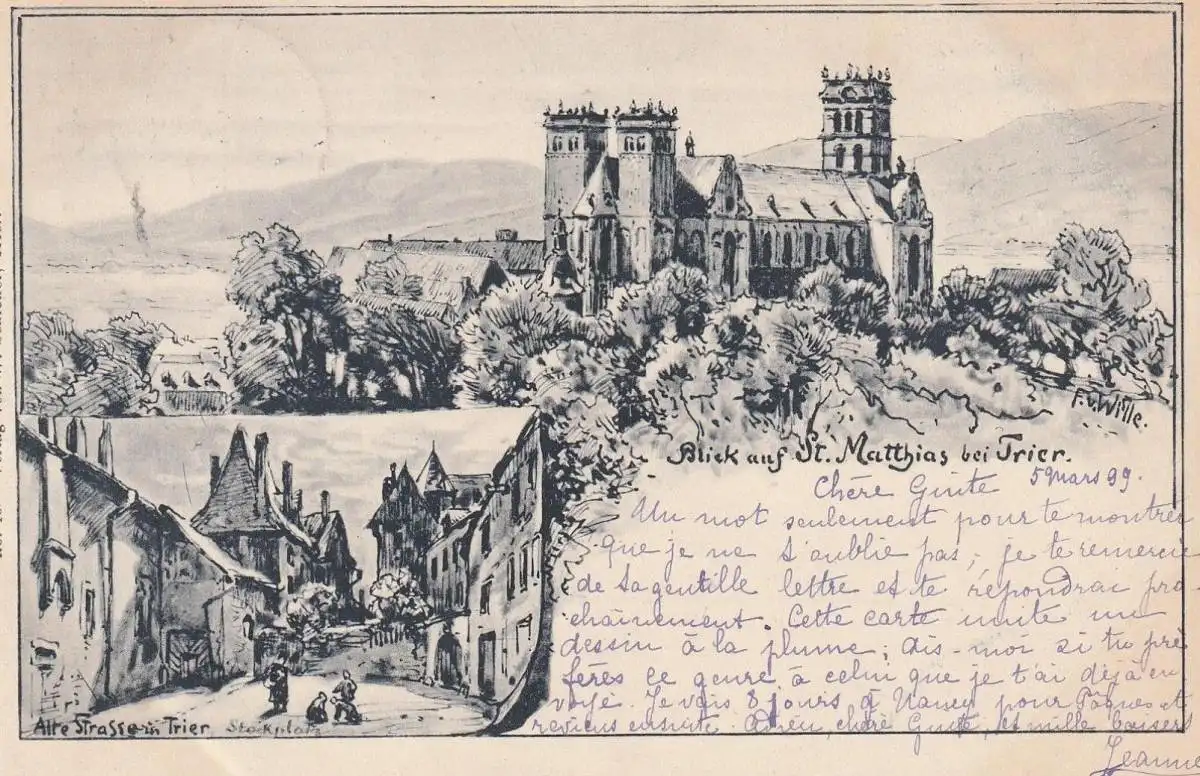 F. v. Wille.
Blick auf St. Matthias bei Trier.
Chère Ginte 5 Mars 99.
Un mot seulement pour te montrer
que je ne t'oublie pas, je te remercie
de ta gentille lettre et te répondrai pro
chainement. Cette carte imite un
dessin à la plume; dis-moi si tu pré
fères ce genre à celui que je t'ai déjà en
voyé. Je vais 8 jours à Nancy pour Pâques et
reviens ensuite. Adieu, chère Ginte, et mille baisers
Jeanne
Alte Strasse in Trier. Stockplatz